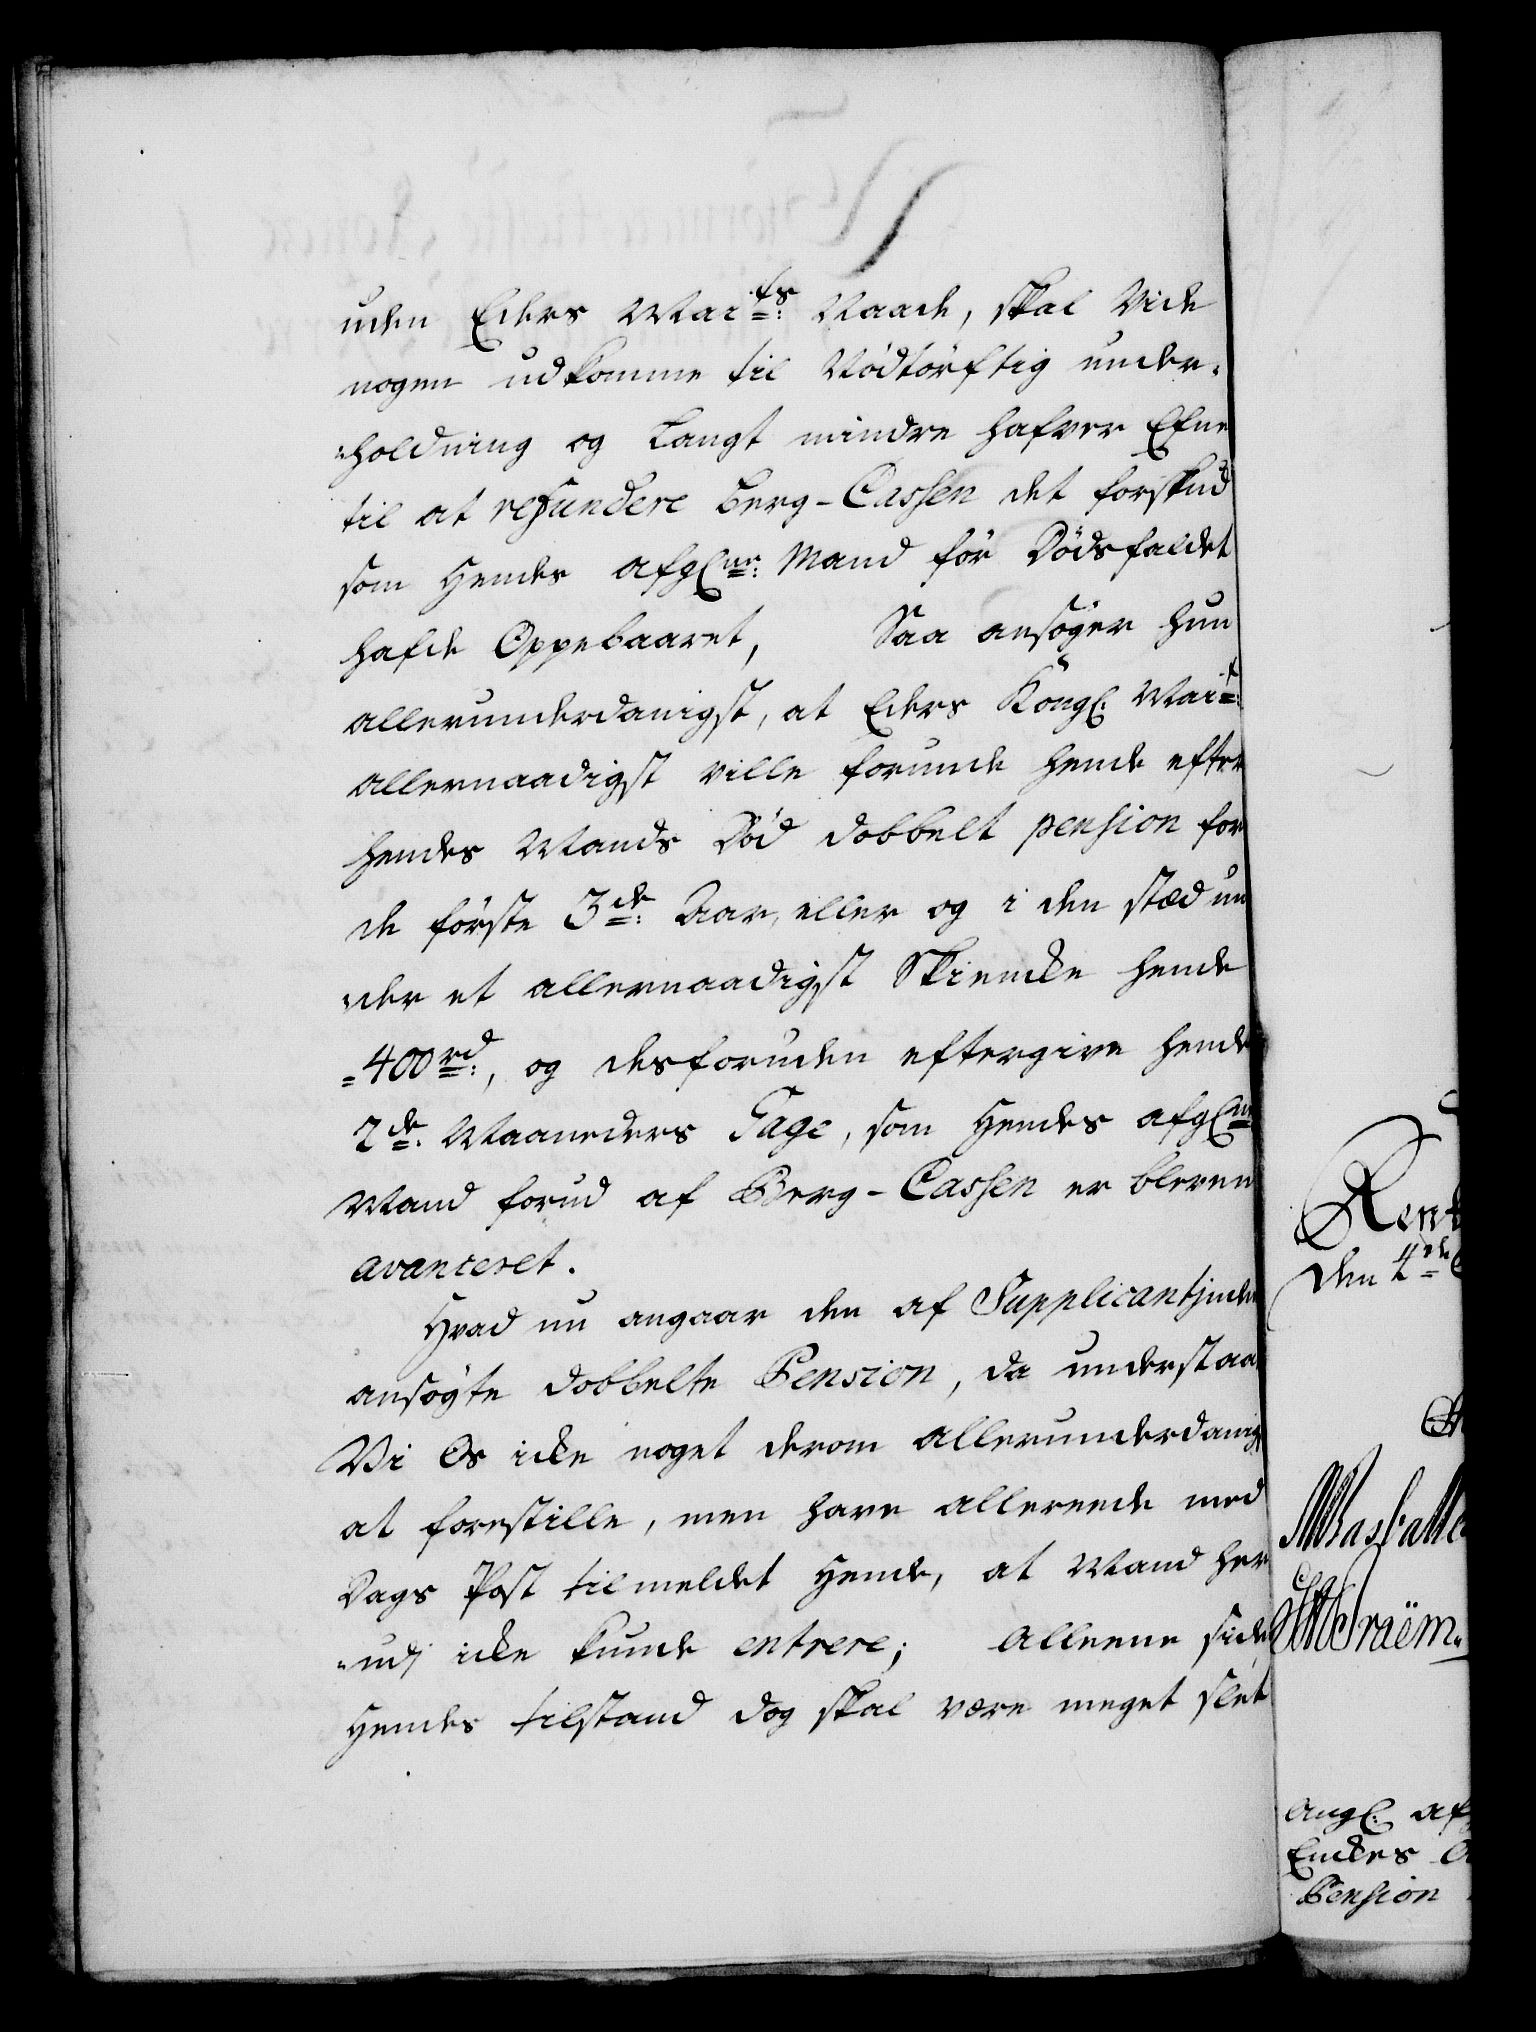 uden Eders Maits: Naade, skal Vide
nogen udkomme til Nödtörftig under-
-holdning og Langt mindre hafver Efne
til at refundere Berg-Cassen det forskud
som Hendes afgl.ne: Mand för Dödsfaldet
hafde Oppebaaret, Saa ansöger hun
allerunderdanigst, at Eders Kongl: Mait:
allernaadigst ville forunde hende efter
hendes Mands Död dobbelt pension for
de förste 3de: Aar, eller og i den stæd un
-der et allernaadigst Skiencke hende
-400rd:, og desforuden eftergive hende
2de: Maaneders Gage, som Hendes afgl.ne
Mand forud af Berg-Cassen er bleven
avanceret.
Hvad nu angaar den af Supplicantinden
ansögte dobbelte Pension, da understaa
Vi Os icke noget derom allerunderdanigst
at forestille, men have allereede med
Dags Post tilmeldet Hende, at Mand her
-udj icke kunde entrere; Alleene siden
Hendes tilstand dog skal være meget slet
Rent
den 4de
Pension
Angl: af
Enckes